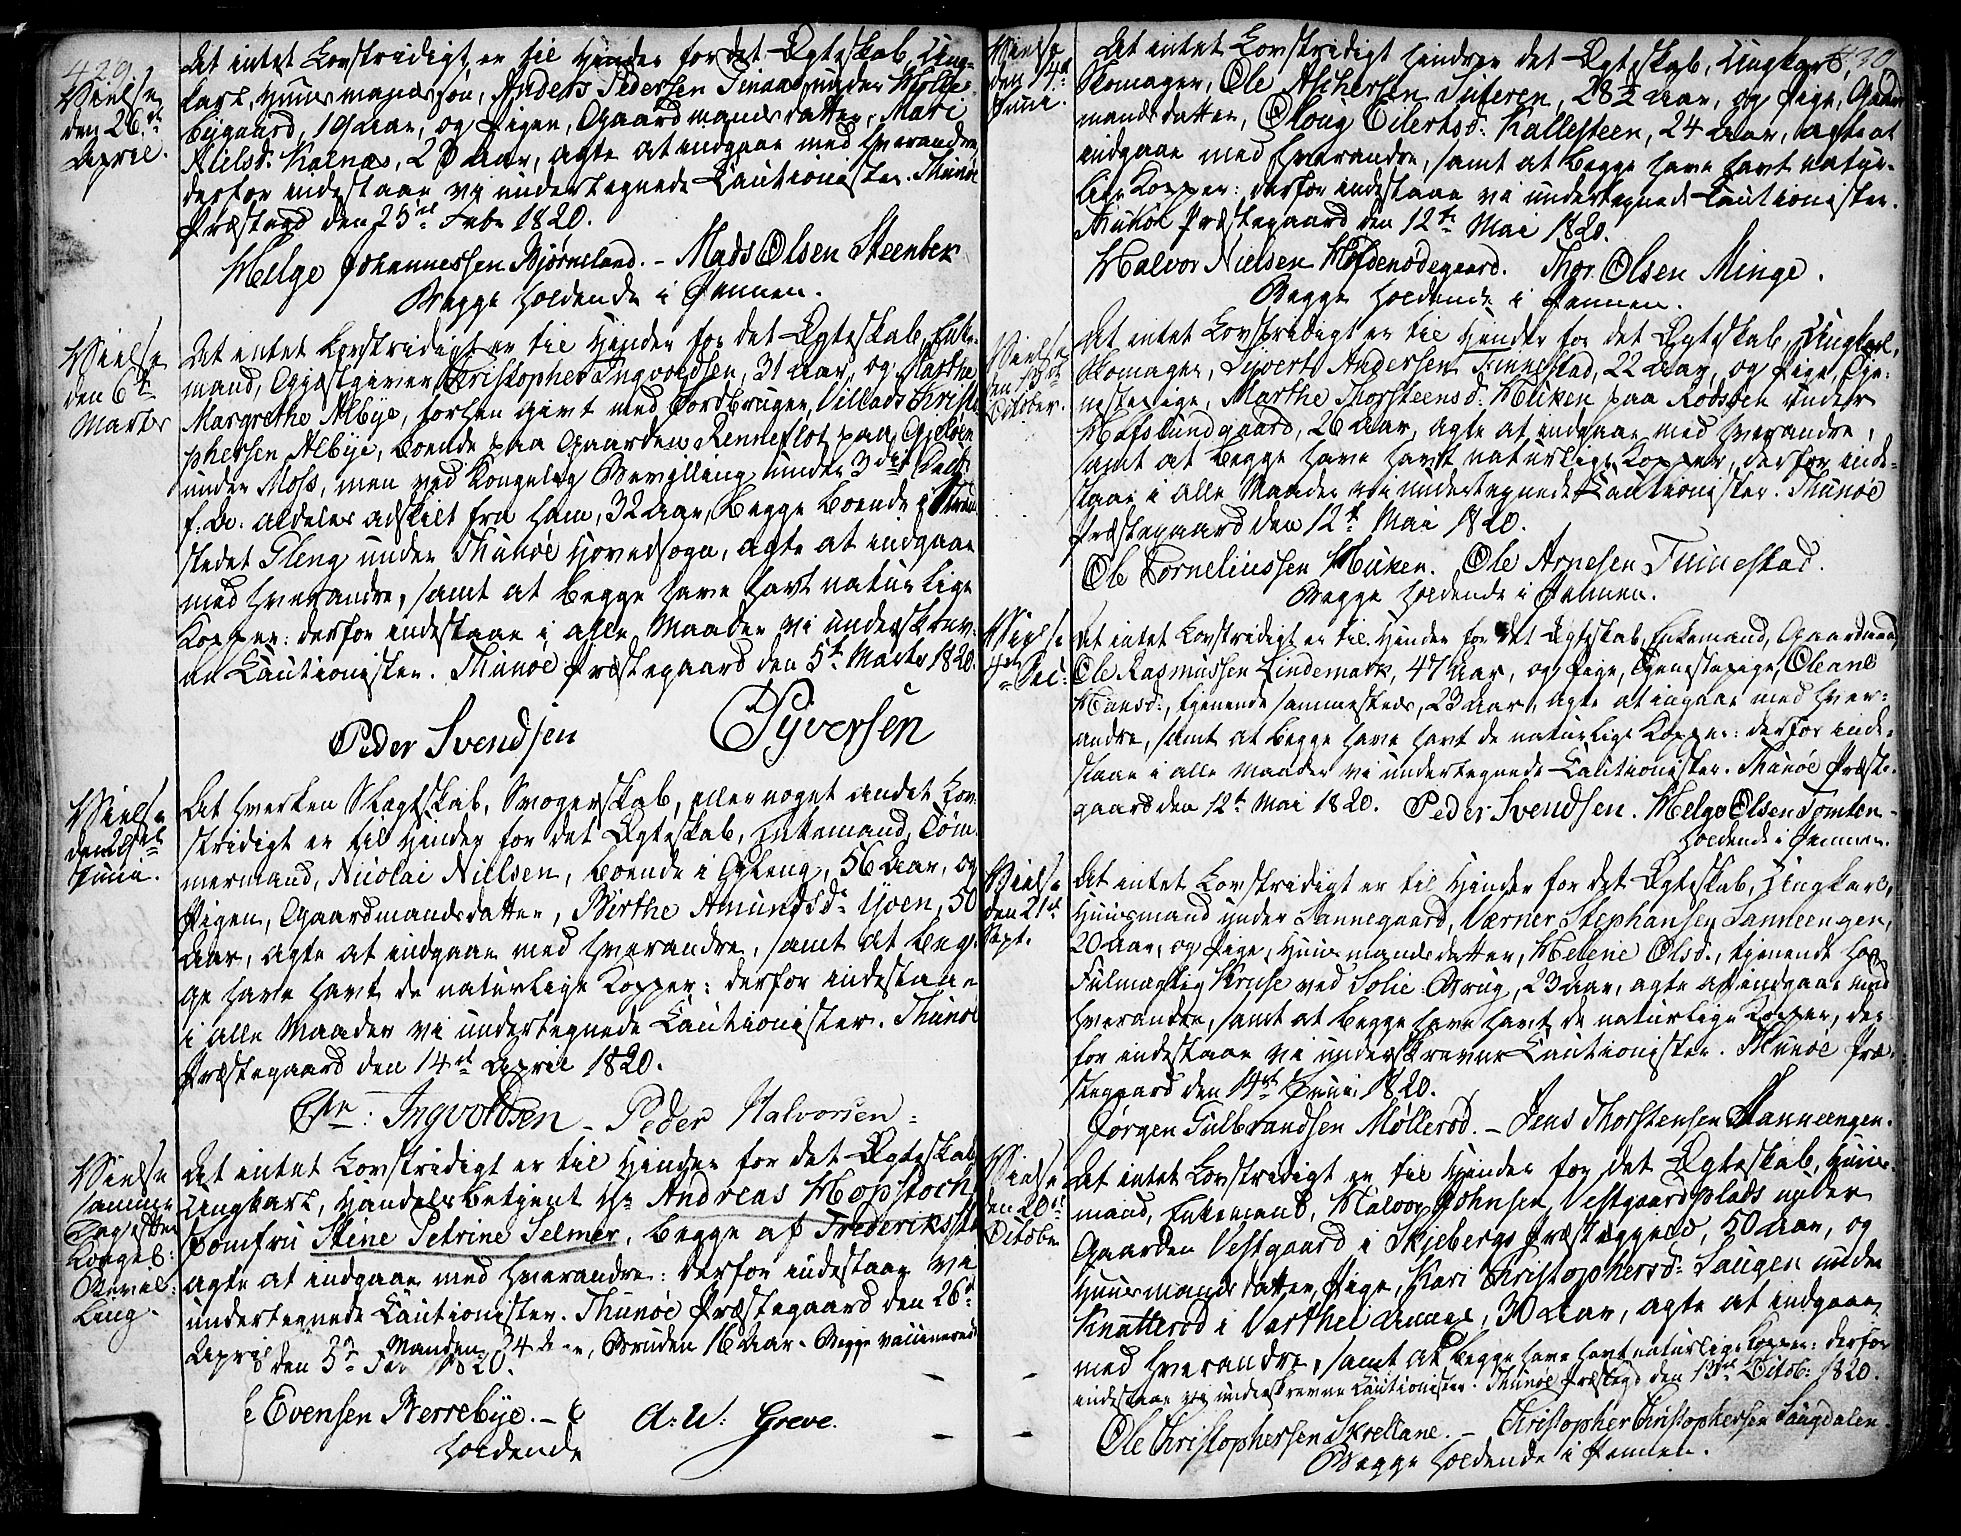 429.
Vielse
den 26de
April.
Det intet Lovstridigt er til Hinder for det Ægteskab, Ung-
karl, Huusmandssøn, Anders Pedersen under
bygaard, 19 Aar, og Pigen, Gaardmandsdatter, Mari
Nielsd. Kalnæs, Aar, agte at indgaae med hverandre,
derfor indestaae vi undertegnede Cautionister. Thunøe
Præstegrd den 25de Febr 1820.
Helge Johannessen Bjørneland. – Mads Olsen Steenbek
Begge holdende i Pennen.
Vielse
den 6te
Marts
Det intet Lovstridigt er til Hinder for det Ægteskab, Enke-
mand, Gjæstgiver Christopher Ingvoldsen, 31 Aar, og Marthe
Margrethe Albye, forhen givt med Jordbruger, Villads Christo
phersen Albye, boende paa Gaarden Renneflot paa Gjeløen
under Moss, men ved Kongelig Bevilling under 3die
f. A: aldeles adskilt fra ham, 32 Aar, begge boende i Strand
stedet Gleng under Thunøe Hovedsogn, agte at indgaae
med hverandre, samt at begge have havt naturlige
Kopper: derfor indestaae i alle Maader vi underskrev-
ne Cautionister. Thunøe Præstegaard den 5te Marts 1820.
Peder Svendsen Syversen
Vielse
den 29de
Junii.
Det hverken Slægtskab, Svogerskab, eller noget andet Lov
stridigt er til Hinder for det Ægteskab, Enkemand, Tøm-
mermand, Nicolai Nielsen, boende i Gleng, 56 Aar, og
Pigen, Gaardmandsdatter, Birthe Amundsd: Hoen, 50
Aar, agte at indgaae med hverandre, samt at beg-
ge have havt de naturlige Kopper: derfor indestaae
i alle Maader vi undertegnede Cautionister. Thunøe
Præstegaard den 14de April 1820.
Chr: Ingvoldsen – Peder Halvorsen
Vielse
samme
Dag efter
Kongel:
Bevil-
ling.
Det intet Lovstridigt er til Hinder for det Ægteskab
Ungkarl, Handelsbetjent Hr Andreas Hopstock
Jomfru Stine Petrine Selmer, begge af Frederikssta
agte at indgaae med hverandre: derfor indestaae vi
undertegnede Cautionister. Thunøe Præstegaard den 26de
April Manden 34 Aar, Bruden 16 Aar. Begge vaccinerede
den 1820.
Evensen Nerrebye. – A: W: Greve.
holdende
430
Vielse
den 14de
Junii.
Det intet Lovstridigt hindrer det Ægteskab, Ungkarl,
Skomager, Ole Aschersen Suteren, 28½ Aar, og Pige, Gaard
mandsdatter, Oloug Eilertsd: Kallesteen, 24 Aar, agte at
indgaae med hverandre, samt at begge have havt natur-
lige Kopper: derfor indestaae vi undertegnede Cautionister.
Thunøe Præstegaard den 12te Mai 1820.
Halvor Nielsen Hofdenodegaard. Thor Olsen Minge.
Begge holdende i Pennen.
Vielse
den 13de
October.
Det intet Lovstridigt er til Hinder for det Ægteskab, Ungkarl,
Skomager, Syvert Andersen Tunestad, 22 Aar, og Pige, Tje-
nestepige, Marthe Thorsteensd: Huken paa Rødsøen under
Hafslundgaard, 26 Aar, agte at indgaae med hverandre,
samt at begge have havt naturlige Kopper, derfor inde-
staae i alle Maader vi undertegnede Cautionister. Thunøe
Præstegaard den 12te Mai 1820.
Ole Corneliussen Huken. Ole Arnesen Tunestad.
Begge holdende i Pennen.
Vielse
4de Dec:
Det intet Lovstridigt er til Hinder for det Ægteskab, Enkemand, Gaardmand,
Ole Rasmussen Lindemark, 47 Aar, og Pige, Tjenestepige, Oleane
Hansd:, tjenende sammesteds, 23 Aar, agte at ingaae med hver-
andre, samt at begge have havt de naturlige Kopper: derfor inde-
staae i alle Maader vi undertegnede Cautionister. Thunøe Præste-
gaard den 12te Mai 1820. Peder Svendsen. Helge Olsen Tomten –
holdende i Pennen.
Vielse
den 21de
Sept.
Det intet Lovstridigt er til Hinder for det Ægteskab, Ungkarl,
Huusmand under Sannegaard, Værner Stephansen Sanneengen,
20 Aar, og Pige, Huusmandsdatter, Helene Olsd:, tjenende hos
Fulmægtig Kruse ved Solie Brug, 23 Aar, agte at indgaae med
hverandre, samt at begge have havt de naturlige Kopper, der-
for indestaae vi underskrevne Cautionister. Thunøe Præ-
stegaard den 14de Junii 1820.
Jørgen Gulbrandsen Møllerod. – Jens Thorstensen Sanneengen.
Vielse
den 20de
Octobr
Det intet Lovstridigt er til Hinder for det Ægteskab, Huus-
mand, Enkemand, Halvor Johnsen, Vestgaardsplads under
Gaarden Vestgaard i Skjebergs Præstegjeld, 50 Aar, og
Huusmandsdatter, Pige, Kari Christophersd: Saugen under
Knatterød i Varthei Annex, 30 Aar, agte at indgaae
med hverandre, samt at begge have havt naturlige Kopper: derfor
indestaae vi underskrevne Cautionister. Thunøe Præstegd den 13de Octob: 1820.
Ole Christophersen Skrellane. – Christopher Christophersen Saugdalen.
Begge holdende i Pennen.